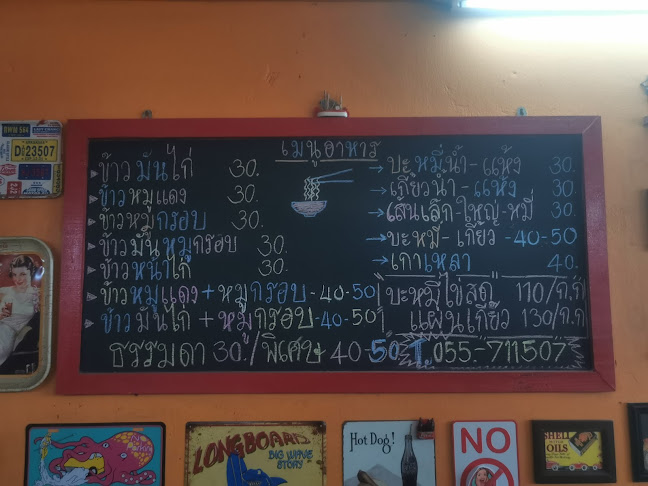 เมนูอาหาร
ข้าวมันไก่ 30.
ข้าวหมูแดง 30.
ข้าวหมูกรอบ 30.
ข้าวมันหมูกรอบ 30.
ข้าวหน้าไก่ 30.
ข้าวหมูแดง+หมูกรอบ-40-50
ข้าวมันไก่+หมูกรอบ-40-50
บะหมี่น้ำ-แห้ง 30.
เกี๊ยวน้ำ-แห้ง 30.
เส้นเล็ก-ใหญ่-หมี่ 30.
บะหมี่-เกี๊ยว-40-50
เกาเหลา 40.
บะหมี่ไข่สด 110/ก.ก
แผ่นเกี๊ยว 130/ก.ก
ธรรมดา 30./พิเศษ 40-50 T.055-711507
BWM 544
23507
LONGBOARD
BIG WAVE
STORY
Hot Dog!
NO
SHELL
MOTOR
OILS